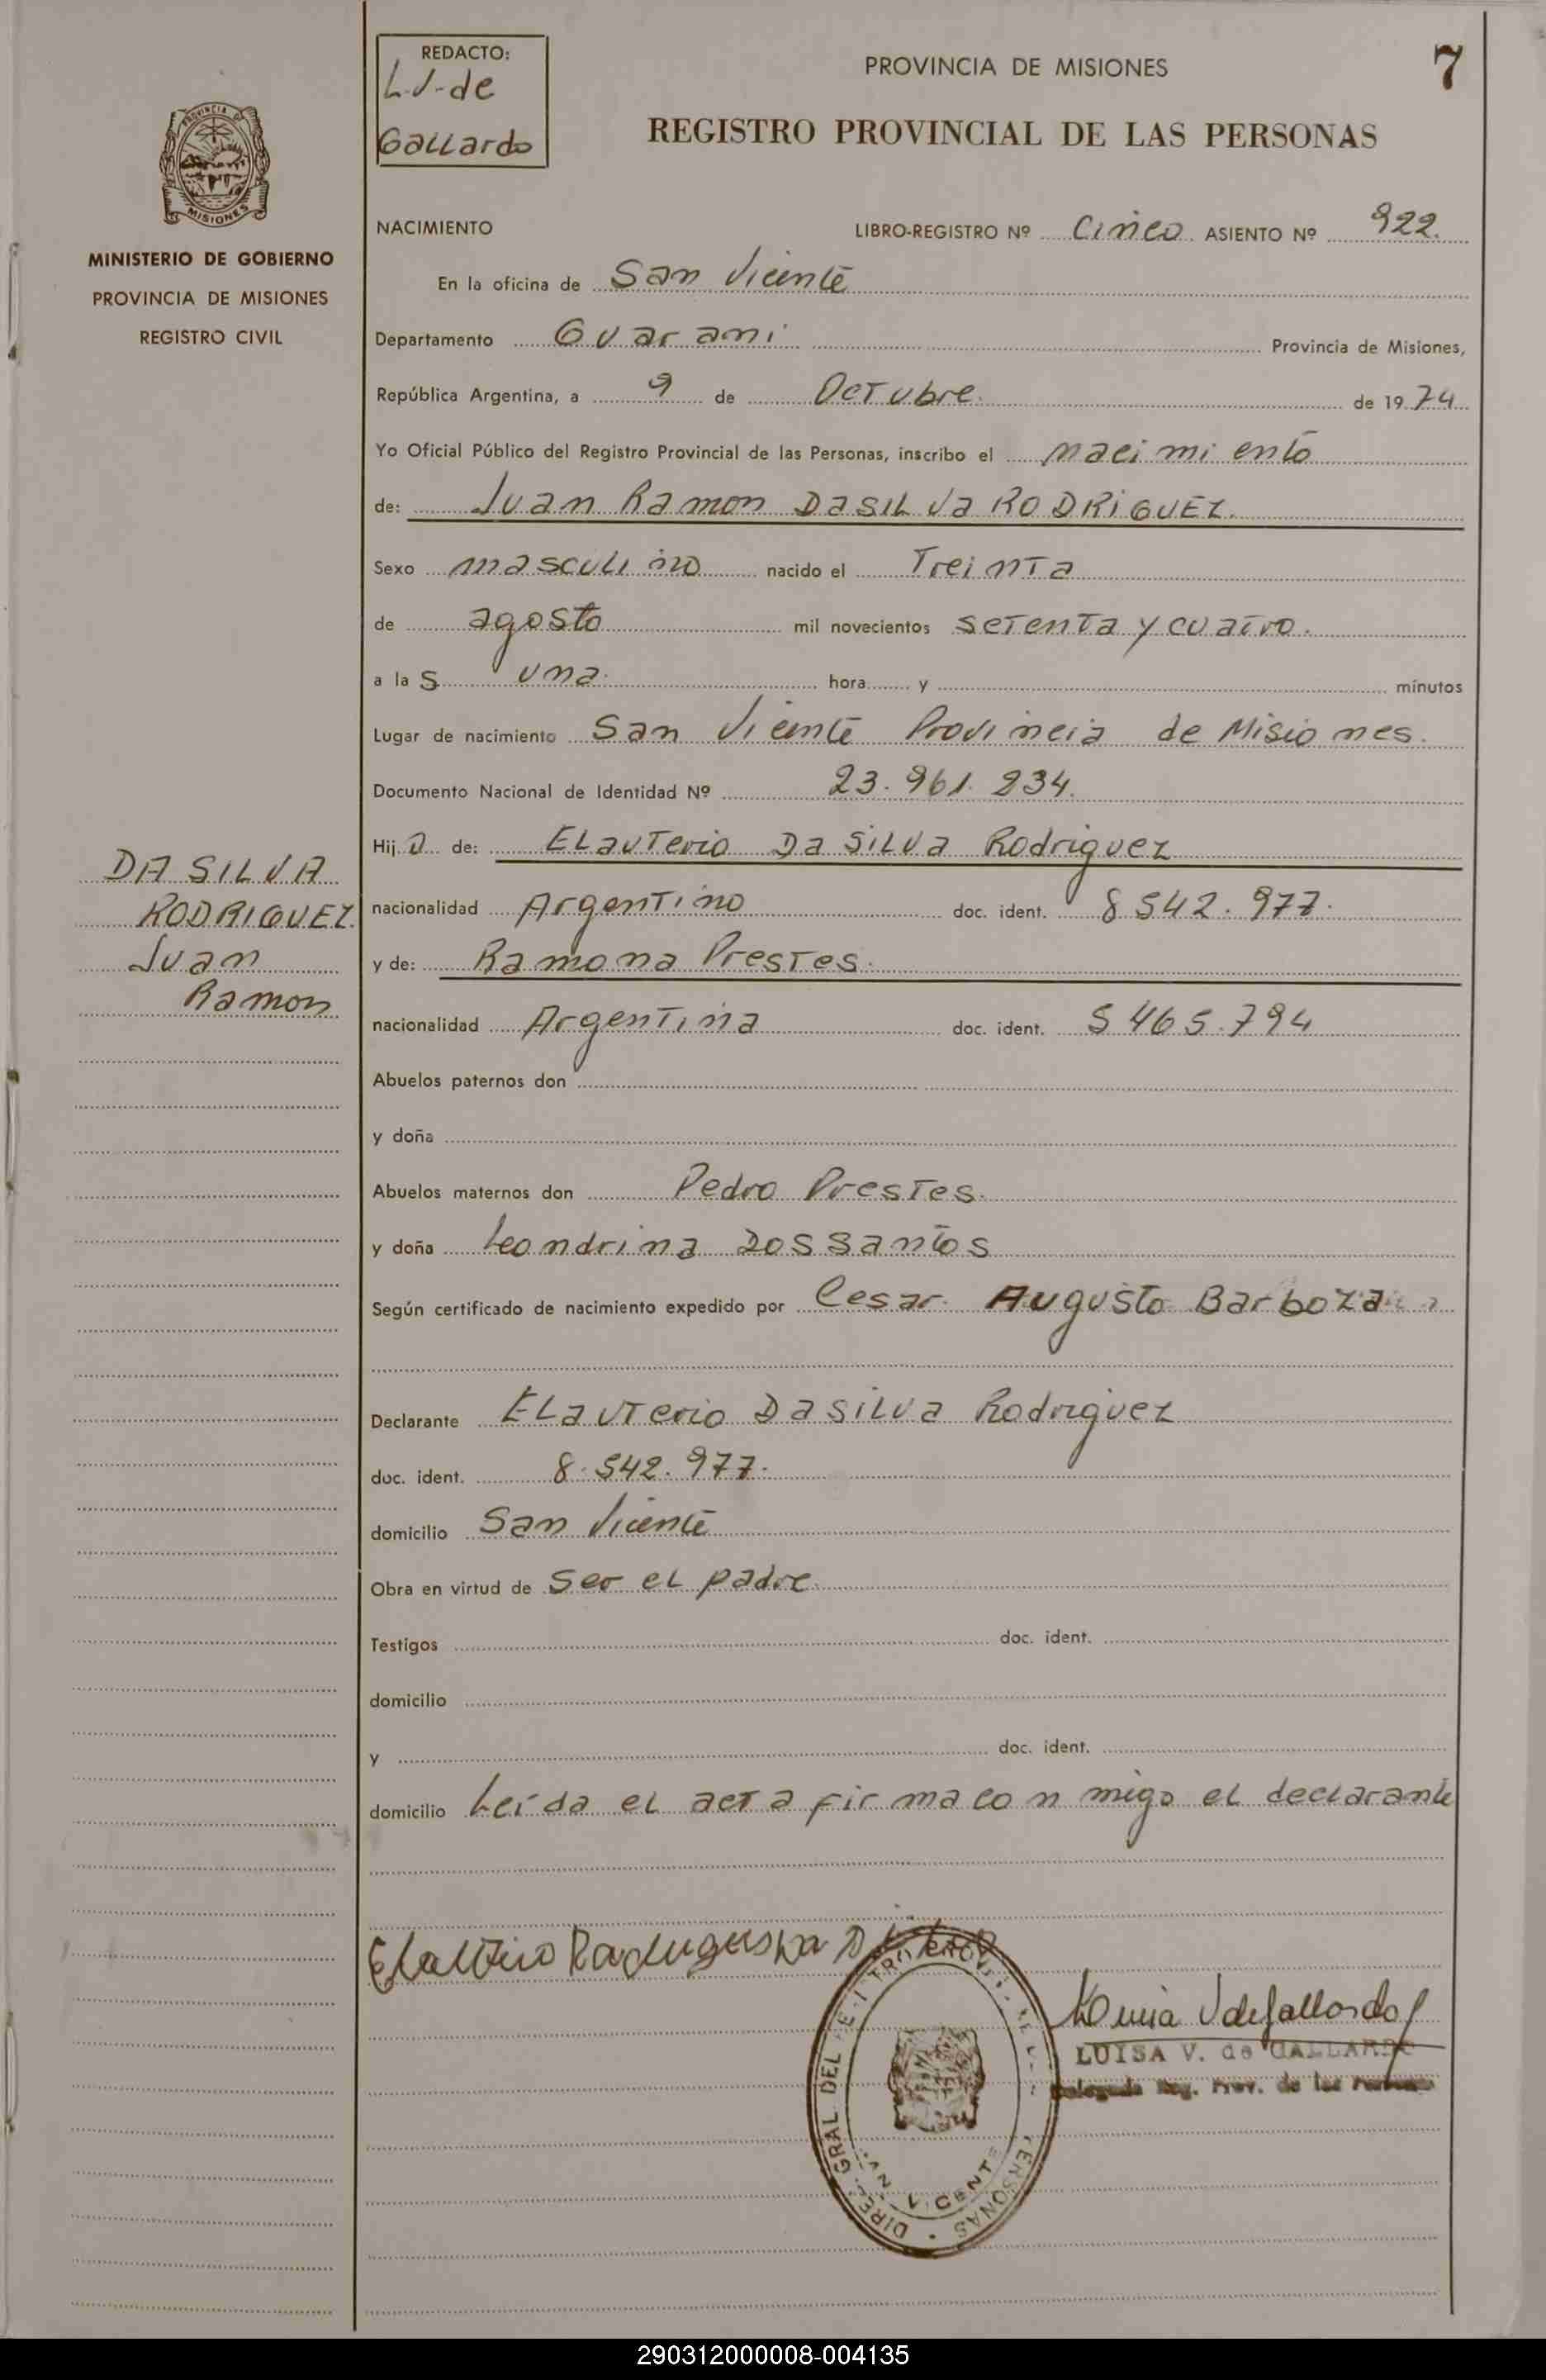 REDACTO:
L.V. de
Gallardo
PROVINCIA DE MISIONES
7
REGISTRO PROVINCIAL DE LAS PERSONAS
PROVINCIA DE
MISIONES
MINISTERIO DE GOBIERNO
PROVINCIA DE MISIONES
REGISTRO CIVIL
NACIMIENTO LIBRO-REGISTRO Nº Cinco ASIENTO Nº 922.
En la oficina de San Vicente
Departamento Guarani Provincia de Misiones,
República Argentina, a 9 de Octubre. de 1974
Yo Oficial Público del Registro Provincial de las Personas, inscribo el nacimiento
de: Juan Ramon DASILVA RODRIGUEZ.
Sexo masculino nacido el Treinta
de agosto mil novecientos setenta y cuatro.
a la s una. hora y minutos
Lugar de nacimiento San Vicente Provincia de Misiones.
Documento Nacional de Identidad Nº 23.961.234.
Hijo de: Elauterio Da Silva Rodriguez
DA SILVA
RODRIGUEZ.
Juan
Ramon
nacionalidad Argentino doc. ident. 8 542.977.
y de: Ramona Prestes.
nacionalidad Argentina doc. ident. 5 465.794
Abuelos paternos don
y doña
Abuelos maternos don Pedro Prestes.
y doña Leondrina Dos Santos
Según certificado de nacimiento expedido por Cesar Augusto Barboza
Declarante Elauterio Dasilva Rodriguez
doc. ident. 8.542.977.
domicilio San Vicente
Obra en virtud de ser el padre.
Testigos doc. ident.
domicilio
y doc. ident.
domicilio Leída el acta firma con migo el declarante
LUISA V. de GALLARDO
Delegada Reg. Prov. de las Personas
SAN VICENTE
290312000008-004135